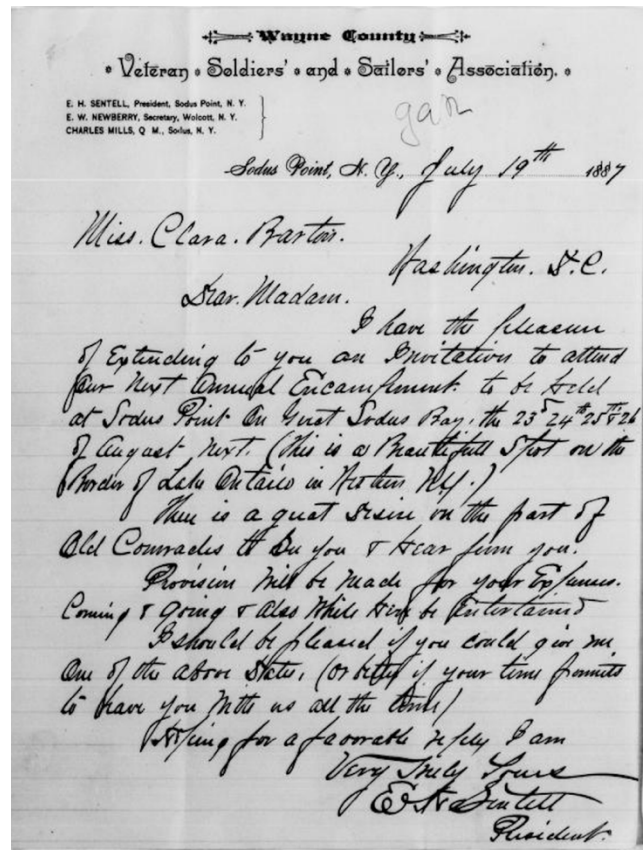 Wayne County
Veteran Soldiers' and Sailors' Association.
E. H. SENTELL, President, Sodus Point, N. Y.
E. W. NEWBERRY, Secretary, Wolcott, N. Y.
CHARLES MILLS, Q M., Sodus, N. Y.
Sodus Point, N. Y., July 19th 1887
Miss. Clara. Barton.
Washington. D.C.
Dear. Madam.
I have the pleasure
of Extending to you an Invitation to attend
Our Next Annual Encampment. to be held
at Sodus Point On Great Sodus Bay. the 23d 24th 25th & 26
of August Next. (this is a Beautifull Spot on the
Border of Lake Ontario in Northern N.Y.)
There is a great Desire on the part of
Old Comrades to See you & Hear from you.
Provision Will be Made for your Expenses.
Coming & going & also While Here be Entertained
I should be pleased if you could give me
One of the above Dates, (or better if your time permits
to have you With us all the time)
Hoping for a favorable reply I am
Very Truly Yours
E H Sentell
President.